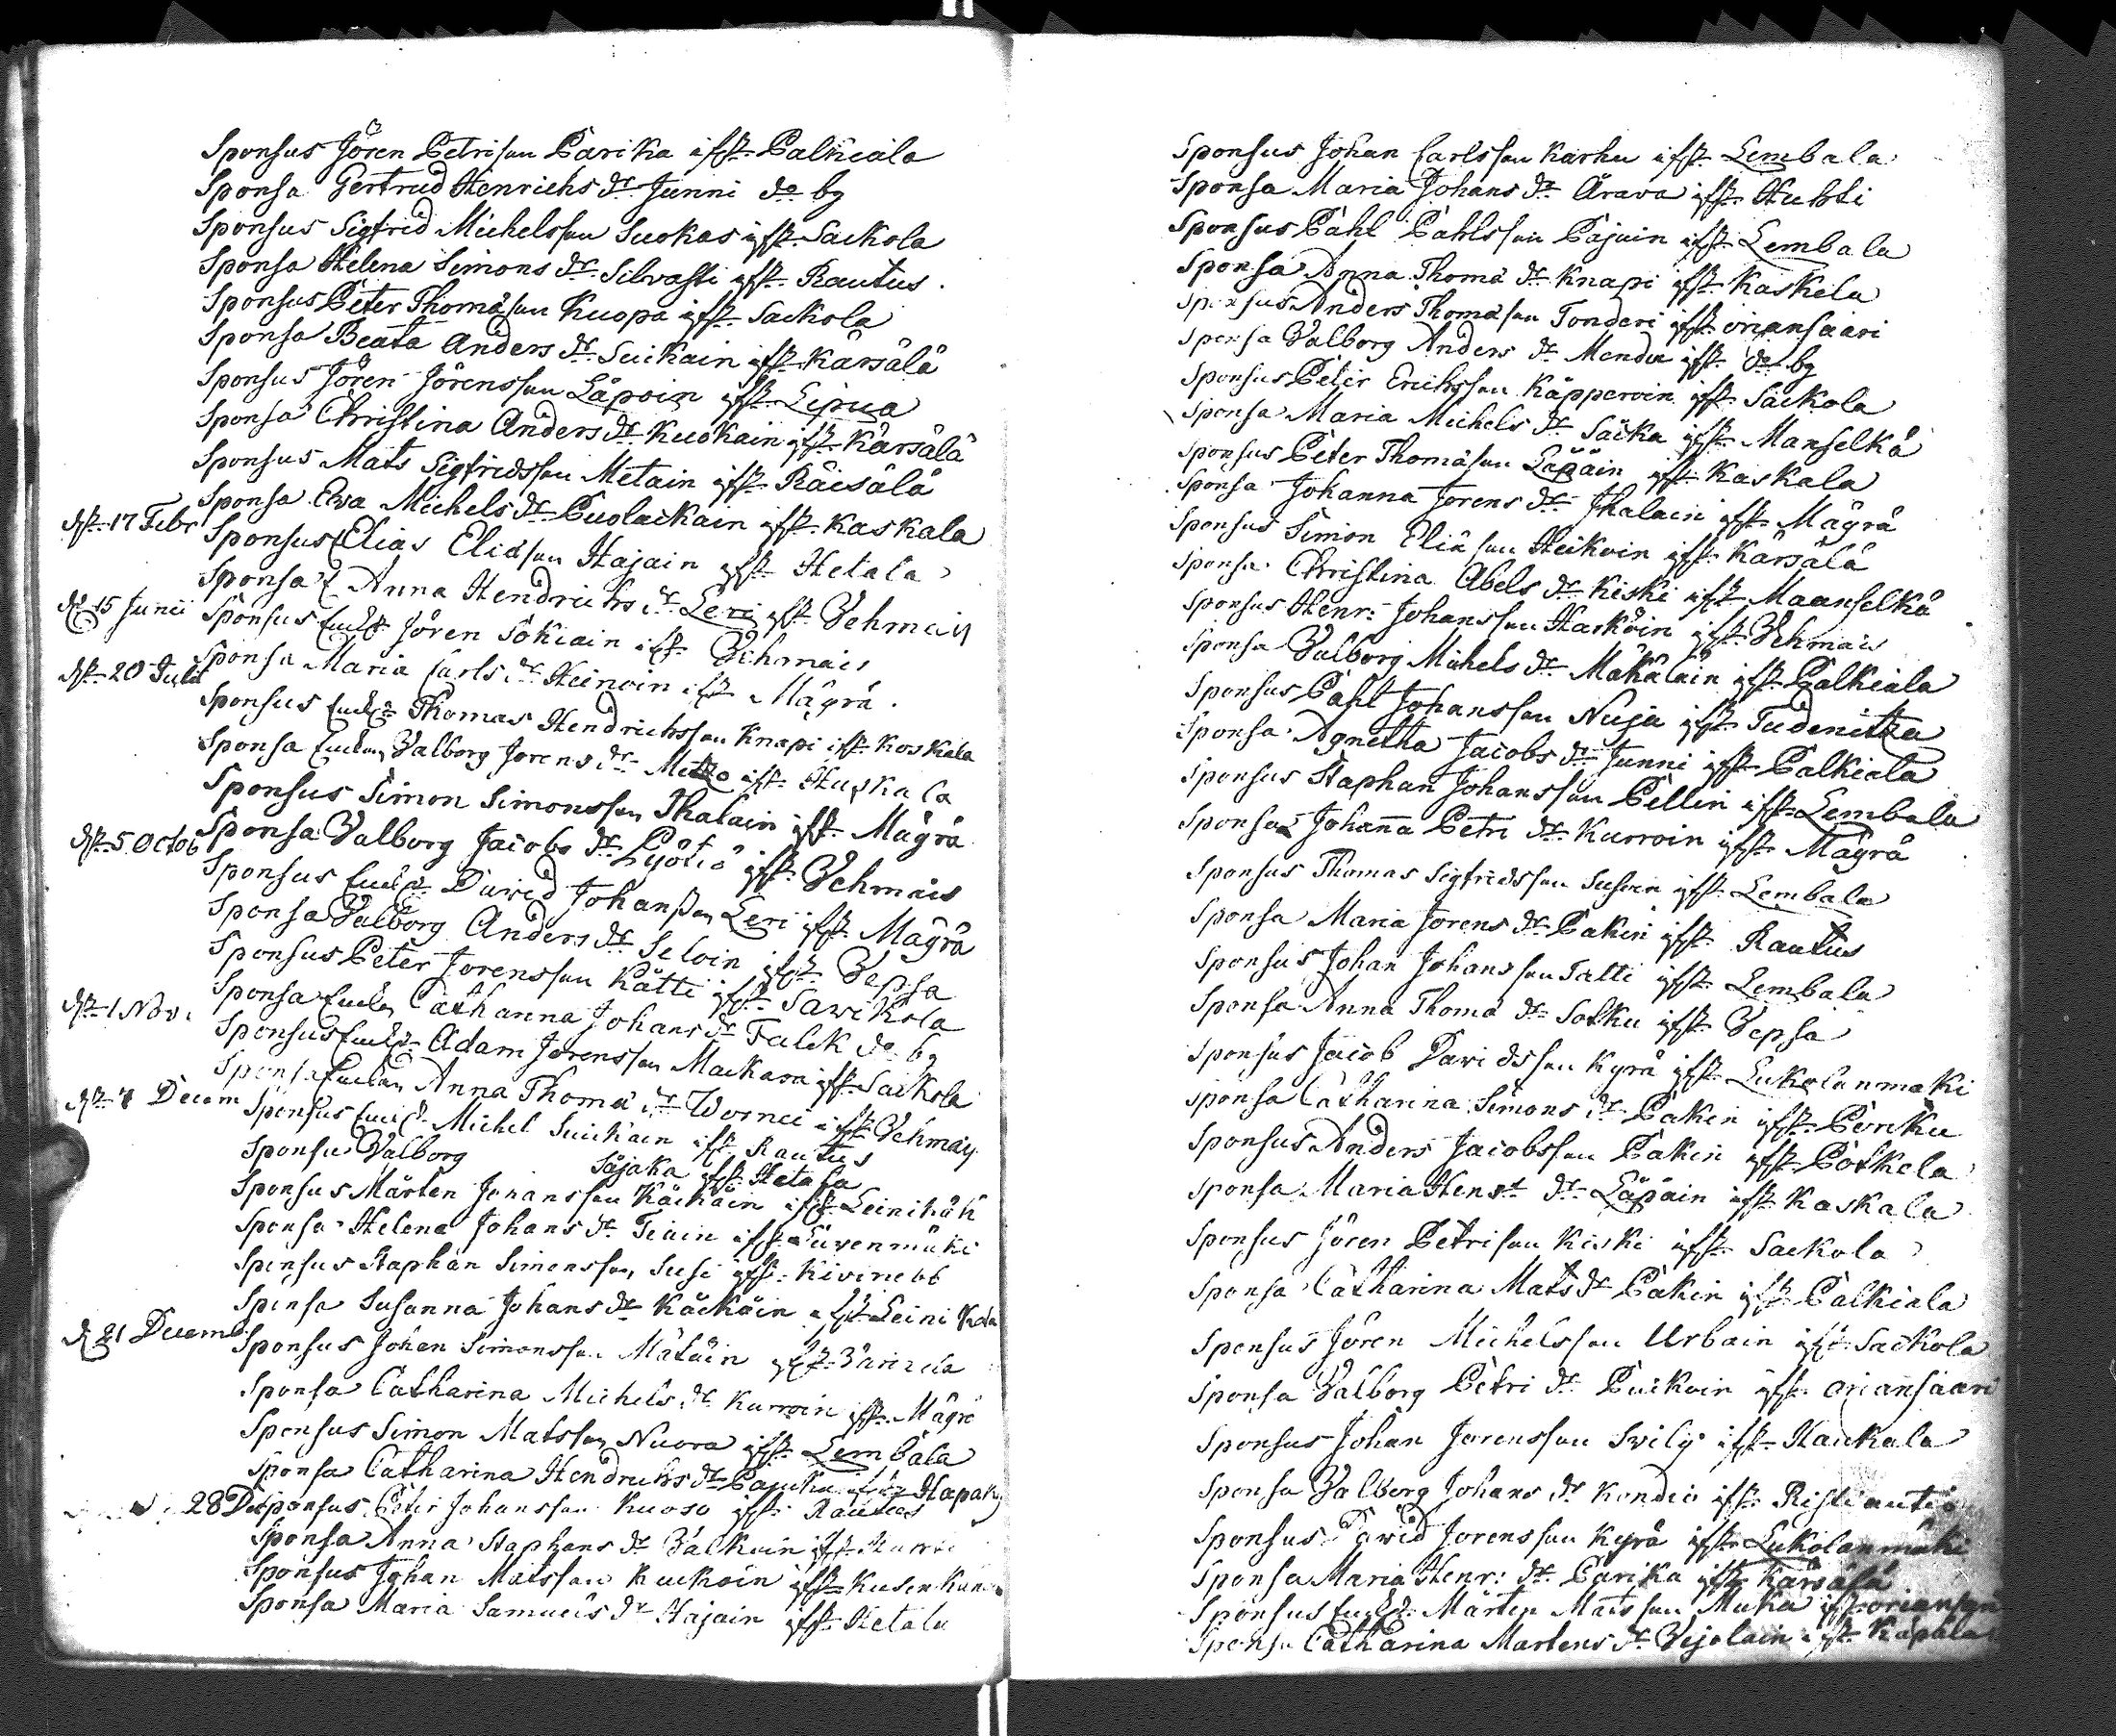 Sponsus Jören Petrisson Parika ifr Palkiala
Sponsa Gertrud Henrichs dr Junni do by
Sponsus Sigfrid Michelsson Suokas ifr Sackola
Sponsa Helena Simons dr Silvasti ifr Rautus
Sponsus Peter Thomasson Kuopa ifr Sackola
Sponsa Beata Anders dr Suikain ifr Kärsälä
Sponsus Jören Jörensson Läpoin ifr Lipua
Sponsa Christina Anders dr Kuokain ifr Kärsälä
Sponsus Mats Sigfridsson Metain ifr Räisälä
Sponsa Ewa Michels dr Puolackain ifr Kaskala
dr 17 Febr Sponsus Elias Eliasson Hajain ifr Hetala
Sponsa Anna Hendrichs dr Leri ifr Vehmais
d 15 Junii Sponsus Jören Sokiain ifr Vehmais
Sponsa Maria Carls dr Heinoin ifr Mägrä
dr 20 Julii Sponsus Thomas Hendrichsson Knapi ifr Koskala
Sponsa Valborg Jorens dr Metzo ifr
Sponsus Simon Simonsson Ihalain ifr Mägrä
dr 5 Octob Sponsa Valborg Jacobs dr Pyötiö ifr Vehmais
Sponsus David Johansson Leri ifr Mägrä
Sponsa Valborg Anders dr Seloin ifr Vepsa
Sponsus Peter Jorensson Kätti ifr Sawikola
dr 1 Nov. Sponsa Catharina Johans dr Falck do by
Sponsus Adam Jorensson Mackara ifr Sackola
Sponsa Anna Thoma dr Wornii ifr Vehmais
dr 7 Decem Sponsus Michel Suickain ifr Rautus
Sponsa Valborg Säjaka ifr Hetala
Sponsus Mårten Johansson Käckäin ifr
Sponsa Helena Johans dr Teiain ifr
Sponsus Staphan Simonsson Susi ifr Kivinebb
Sponsa Susanna Johans dr Käckäin ifr
d 21 Decemb Sponsus Johan Simonsson Mätäin ifr
Sponsa Catharina Michels dr Kurroin ifr Mägrä
Sponsus Simon Matsson Nuora ifr Lembala
Sponsa Catharina Hendrichs dr ifr
28 Dec Sponsus Peter Johansson Kuosa ifr Rautus
Sponsa Anna Staphans dr Valkuin ifr
Sponsus Johan Matsson Kuckoin ifr
Sponsa Maria Samuels dr Hajain ifr Hetala
Sponsus Johan Carlsson Karhu ifr Lembala
Sponsa Maria Johans dr Ärava ifr Huhti
Sponsus Påhl Påhlsson Pajuin ifr Lembala
Sponsa Anna Thoma dr Knapi ifr Kaskela
Sponsus Anders Thomasson Tonderi ifr oriansaari
Sponsa Valborg Anders dr Mendu ifr do by
Sponsus Peter Erichsson Käpperoin ifr Sackola
Sponsa Maria Michels dr Säcka ifr Manselkä
Sponsus Peter Thomasson Läpäin ifr Kaskala
Sponsa Johanna Jorens dr Ihalain ifr Mägrä
Sponsus Simon Eliasson Heikoin ifr Kärsälä
Sponsa Christina Abels dr Kiski ifr Maanselkä
Sponsus Henr: Johansson Haskoin ifr Vehmais
Sponsa Valborg Michels dr Mäkäläin ifr Palkiala
Sponsus Påhl Johansson Nuja ifr Tudenitza
Sponsa Agnetha Jacobs dr Junni ifr Palkiala
Sponsus Staphan Johansson Pellin ifr Lembala
Sponsa Johanna Petri dr Kurroin ifr Mägrä
Sponsus Thomas Sigfridsson Susoin ifr Lembala
Sponsa Maria Jorens dr Pakin ifr Rautus
Sponsus Johan Johansson Talti ifr Lembala
Sponsa Anna Thoma dr Solku ifr Vepsa
Sponsus Jacob Davidsson Kyrä ifr Lukolanmäki
Sponsa Catharina Simons dr Pakin ifr Porcku
Sponsus Anders Jacobsson Pakin ifr Potkela
Sponsa Maria Henr dr Läpäin ifr Kaskala
Sponsus Jören Petrisson Kiski ifr Sackola
Sponsa Catharina Mats dr Pakin ifr Palkiala
Sponsus Jören Michelsson Urbain ifr Sackola
Sponsa Valborg Petri dr Puikoin ifr oriansaari
Sponsus Johan Jorensson Svily ifr Haukala
Sponsa Valborg Johans dr Kondia ifr Ristiautio
Sponsus David Jorensson Kyrä ifr Lukolanmäki
Sponsa Maria Henr: dr Parika ifr Kärsälä
Sponsus Mårten Matsson Muka ifr
Sponsa Catharina Martens dr Vejolain ifr Kapala